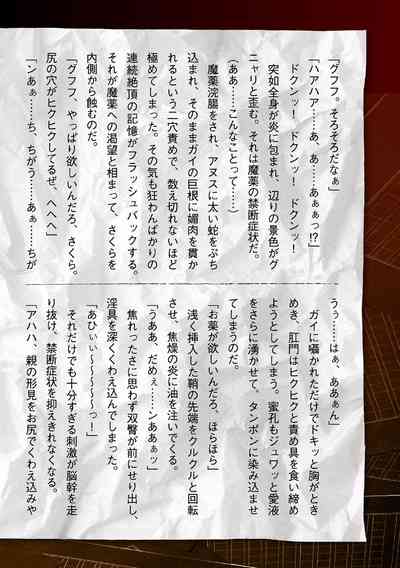 「グフフ。そろそろだなぁ」
「ハアハア……あ、あ……あぁぁっ!?」
　ドクンッ！　ドクンッ！　ドクンッ！
　突如全身が炎に包まれ、辺りの景色がグ
ニャリと歪む。それは魔薬の禁断症状だ。
（ああ……こんなことって……）
　魔薬浣腸をされ、アヌスに太い蛇をぶち
込まれ、そのままガイの巨根に媚肉を貫か
れるという二穴責めで、数え切れないほど
極めてしまった。その気も狂わんばかりの
連続絶頂の記憶がフラッシュバックする。
それが魔薬への渇望と相まって、さくらを
内側から蝕むのだ。
「グフフ、やっぱり欲しいんだろ、さくら。
尻の穴がヒクヒクしてるぜ、へへへ」
「ンあぁ……ち、ちがう……あぁ……ちが
うぅ……はぁ、ああぁん」
　ガイに囁かれただけでドキッと胸がとき
めき、肛門はヒクヒクと責め具を食い締め
ようとしてしまう。蜜孔もジュワッと愛液
をさらに湧かせて、タンポンに染み込ませ
てしまうのだ。
「お薬が欲しいんだろ、ほらほら」
　浅く挿入した鞘の先端をクルクルと回転
させ、焦燥の炎に油を注いでくる。
「うああ、だめぇ……ンああぁッ」
　焦れったさに思わず双臀が前にせり出し、
淫具を深くくわえ込んでしまった。
「あひぃぃ～～～～～っ！」
　それだけでも十分すぎる刺激が脳幹を走
り抜け、禁断症状を抑えきれなくなる。
「アハハ、親の形見をお尻でくわえ込みや